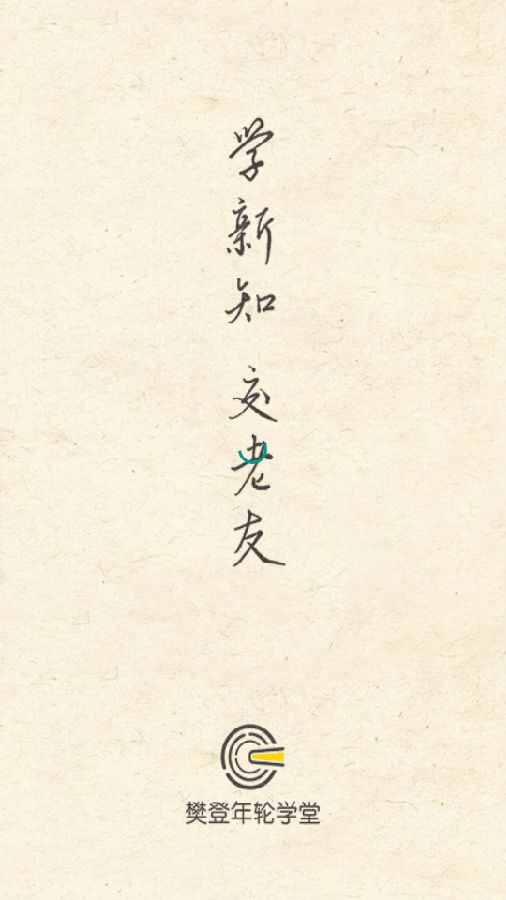 学新知 交老友
樊登年轮学堂